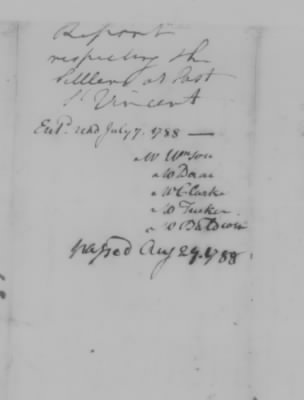 Report
respecting the
Settlers at Post
St Vincent
Entd. read July 7. 1788 —
Mr Wmson
Mr Dane
Mr Clarke
Mr Tucker
Mr Baldwin
passed Aug 29. 1788